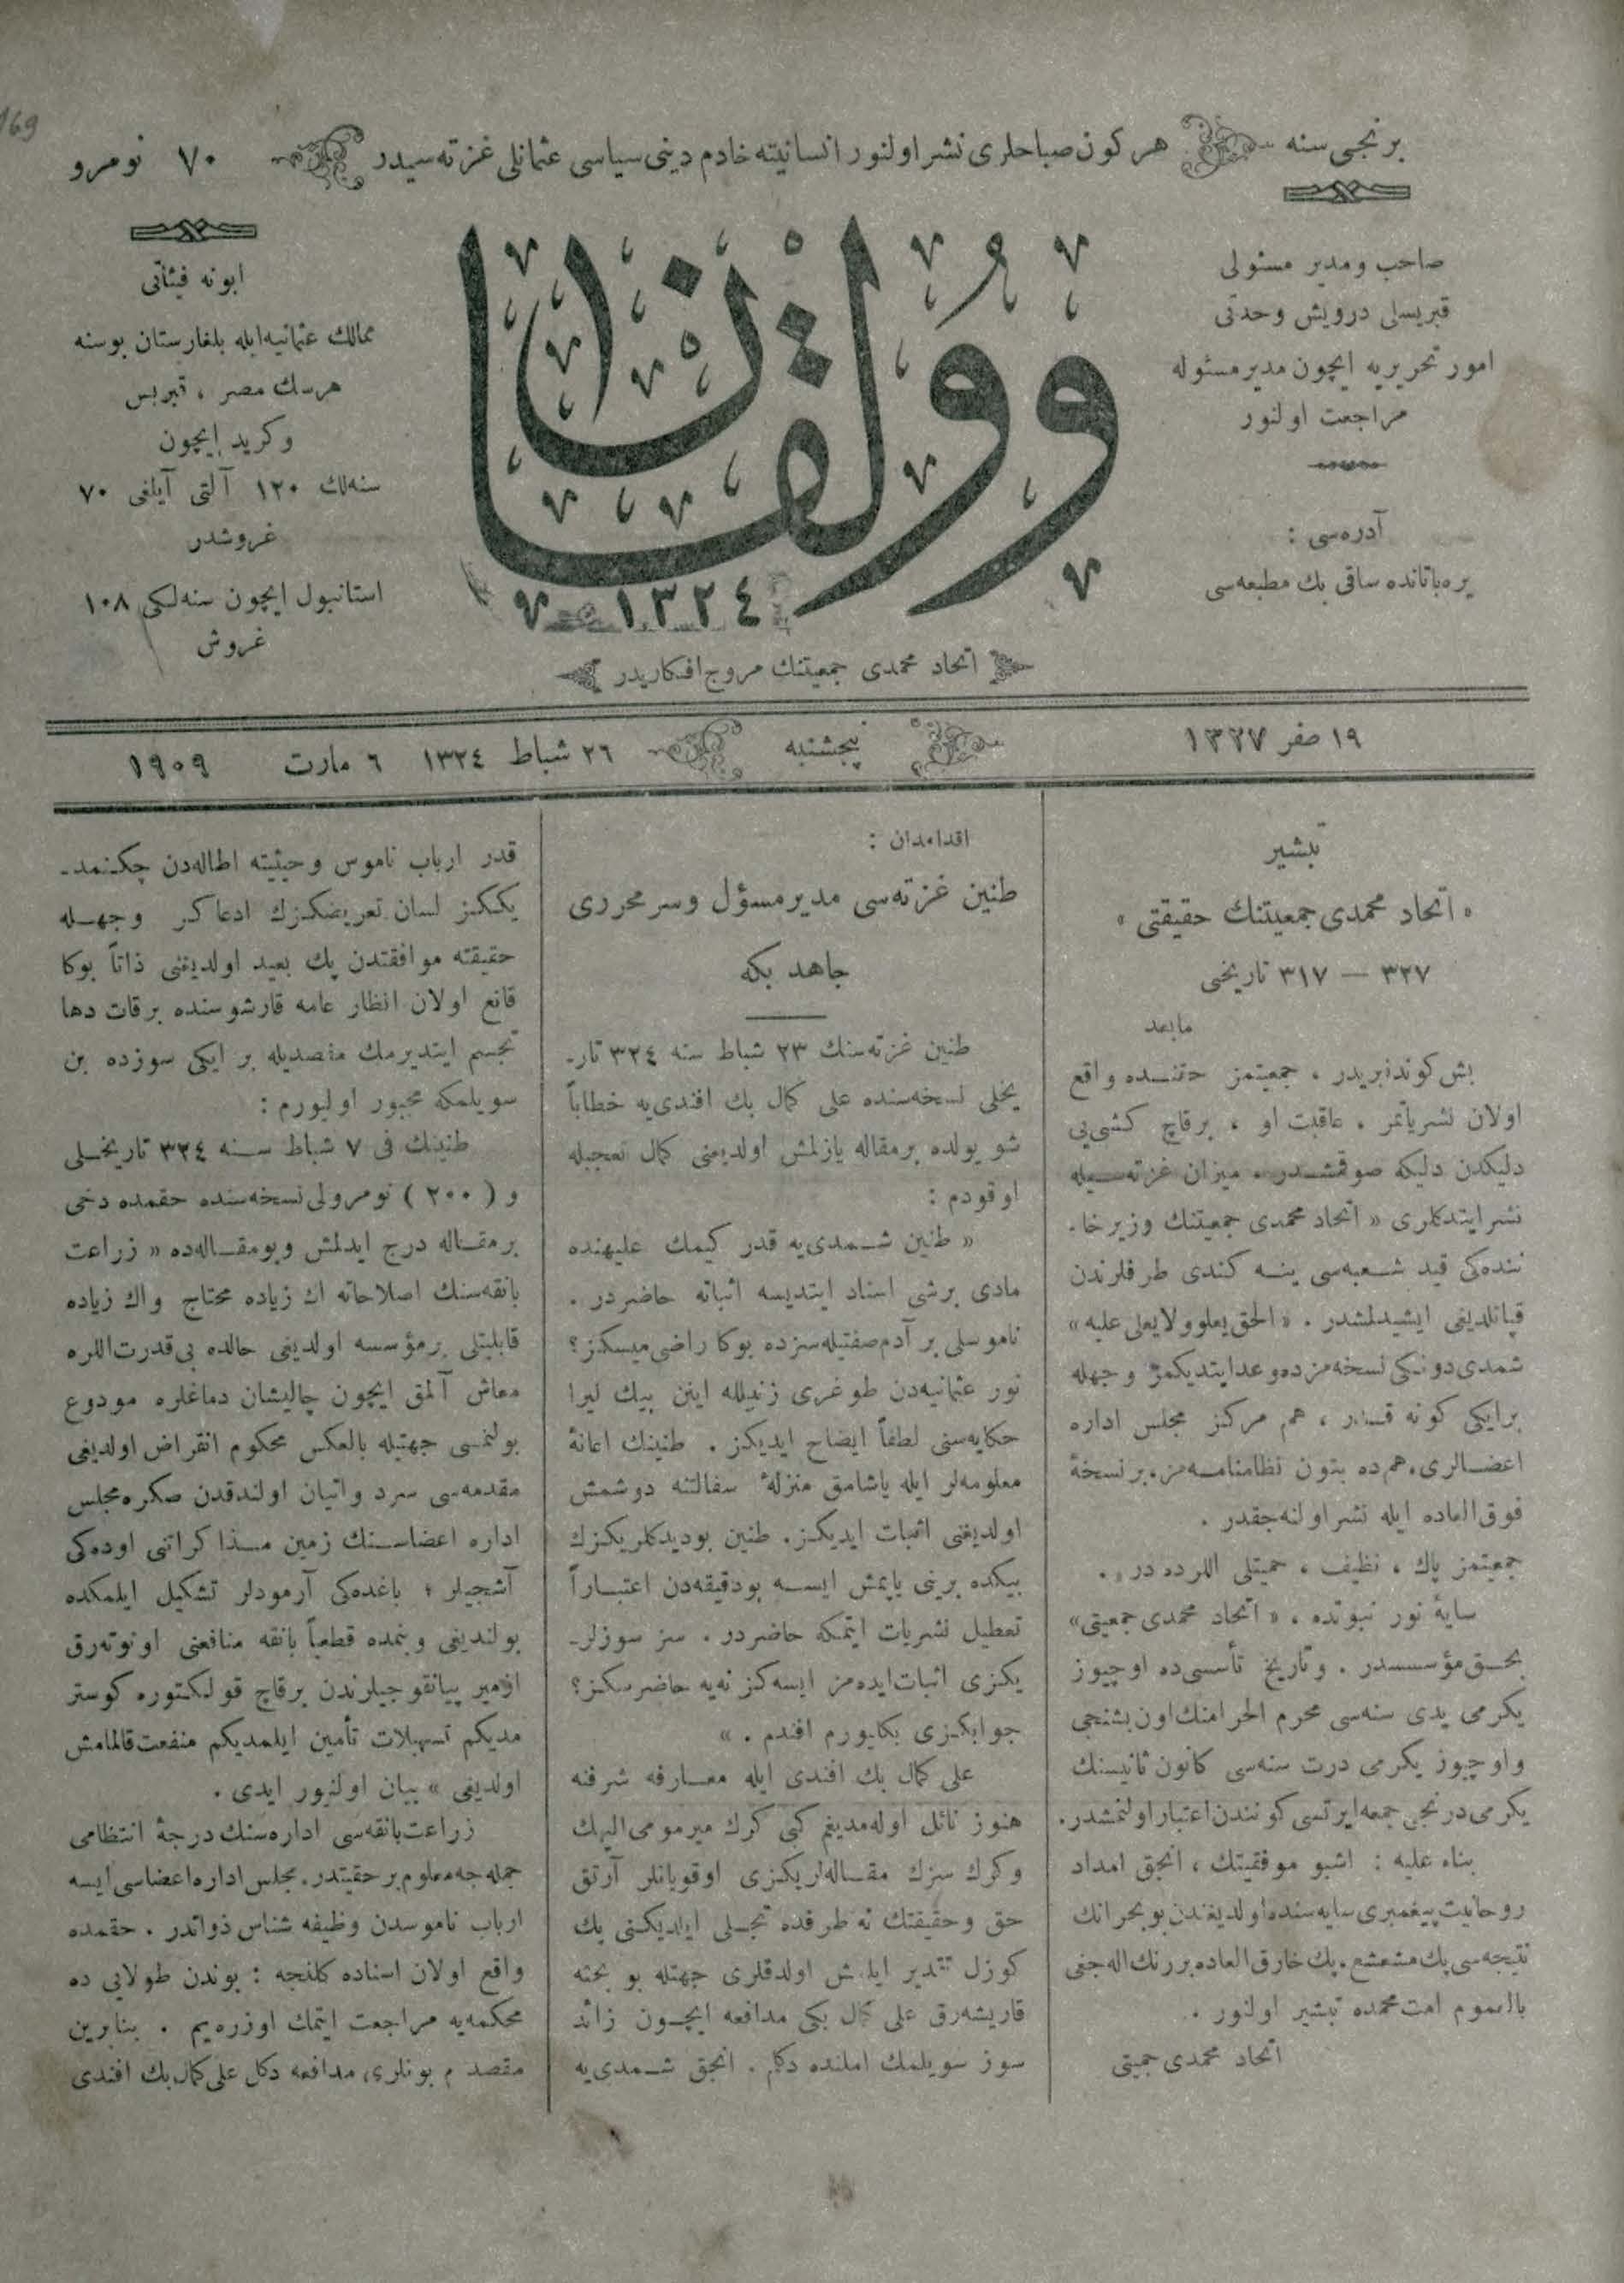 169
برنجى سنه هر كون صباحلرى نشر اولنور انسانيته خادم دينى سياسى عثمانلى غزته سيدر ٧٠ نومرو
صاحب ومدير مسئولى
قبريسلى درويش وحدتى
امور تحريريه ايچون مدير مسئوله
مراجعت اولنور
آدره سى :
يره باتانده ساقى بك مطبعه سى
وولقان
١٣٢٤
اتحاد محمدى جمعيتنك مروج افكاريدر
ابونه فيئاتى
ممالك عثمانيه ايله بلغارستان بوسنه
هرسك مصر ، قبريس
وكريد ايچون
سنه لك ١٢٠ آلتى آيلغى ٧٠
غروشدر
استانبول ايچون سنه لكى ١٠٨
غروش
١٩ صفر ١٣٢٧ پنجشنبه ٢٦ شباط ١٣٢٤ ٦ مارت ١٩٠٩
تبشير
« اتحاد محمدى جمعيتنك حقيقتى »
٣٢٧ — ٣١٧ تاريخى
مابعد
بش كوندنبريدر ، جمعيتمز حقنده واقع
اولان نشرياتمز ، عاقبت او ، برقاچ كشى يى
دليكدن دليكه صوقمشدر . ميزان غزته سيله
نشر ايتدكلرى « اتحاد محمدى جمعيتنك وزير خا-
ننده كى قيد شعبه سى ينه كندى طرفلرندن
قپانلديغى ايشيدلمشدر . « الحق يعلو ولا يعلى عليه »
شمدى دونكى نسخه مزده وعد ايتديكمز وجهله
برايكى كونه قدر ، هم مركز مجلس اداره
اعضالرى ، هم ده بتون نظامنامه مز ، بر نسخۀ
فوق العاده ايله نشر اولنه جقدر .
جمعيتمز پاك ، نظيف ، حميتلى اللرده در .
سايۀ نور نبوتده ، « اتحاد محمدى جمعيتى »
بحق مؤسسدر . وتاريخ تأسسى ده اوچيوز
يكرمى يدى سنه سى محرم الحرامنك اون بشنجى
واوچيوز يكرمى درت سنه سى كانون ثانيسنك
يكرمى درنجى جمعه ايرتسى كونندن اعتبار اولنمشدر.
بناء عليه : اشبو موفقيتك ، انجق امداد
روحانيت پيغمبرى سايه سنده اولديغندن بو بحرانك
نتيجه سى پك مشعشع ، پك خارق العاده بر رنك اله جغى
بالعموم امت محمده تبشير اولنور .
اتحاد محمدى جمعيتى
اقدامدان :
طنين غزته سى مدير مسؤل وسرمحررى
جاهد بكه
طنين غزته سنك ٢٣ شباط سنه ٣٢٤ تار-
يخلى نسخه سنده على كمال بك افندى يه خطاباً
شو يولده بر مقاله يازلمش اولديغنى كمال تعجبله
اوقودم :
« طنين شمدى يه قدر كيمك عليهنده
مادى برشى اسناد ايتديسه اثباته حاضردر .
ناموسلى بر آدم صفتيله سزده بوكا راضى ميسكز؟
نور عثمانيه دن طوغرى زنبيلله اينن بيك ليرا
حكايه سنى لطفاً ايضاح ايديكز . طنينك اعانۀ
معلومه لر ايله ياشامق منزلۀ سفالتنه دوشمش
اولديغنى اثبات ايديكز . طنين بو ديدكلريكزك
بيكده برينى ياپمش ايسه بو دقيقه دن اعتباراً
تعطيل نشريات ايتمكه حاضردر . سز سوزلر-
يكزى اثبات ايده مز ايسه كز نه يه حاضرسكز؟
جوابكزى بكليورم افندم . »
على كمال بك افندى ايله معارفه شرفنه
هنوز نائل اوله مديغم كبى كرك ميرمومى اليهك
وكرك سزك مقاله لريكزى اوقويانلر آرتق
حق وحقيقتك نه طرفده تجلى ايلديكنى پك
كوزل تقدير ايلمش اولدقلرى جهتله بو بحثه
قاريشه رق على كمال بكى مدافعه ايچون زائد
سوز سويلمك املنده دكلم . انجق شمدى يه
قدر ارباب ناموس وحيثيته اطاله دن چكنمد-
يككز لسان تعريضكزك ادعاكز وجهله
حقيقته موافقتدن پك بعيد اولديغنى ذاتاً بوكا
قانع اولان انظار عامه قارشوسنده بر قات دها
تجسم ايتديرمك مقصديله بر ايكى سوزده بن
سويلمكه مجبور اوليورم :
طنينك فى ٧ شباط سنه ٣٢٤ تاريخلى
و ( ٢٠٠ ) نومرولى نسخه سنده حقمده دخى
بر مقاله درج ايدلمش وبومقاله ده « زراعت
بانقه سنك اصلاحاته اك زياده محتاج واك زياده
قابليتلى بر مؤسسه اولديغى حالده بى قدرت اللره
معاش آلمق ايچون چاليشان دماغلره مودوع
بولنمسى جهتيله بالعكس محكوم انقراض اولديغى
مقدمه سى سرد واتيان اولندقدن صكره مجلس
اداره اعضاسنك زمين مذاكراتنى اوده كى
آشجيلر ؛ باغده كى آرمودلر تشكيل ايلمكده
بولنديغى وبنمده قطعياً بانقه منافعنى اونوته رق
ازمير پيانقوجيلرندن برقاچ قولكتوره كوستر
مديكم تسهيلات تأمين ايلمديكم منفعت قالمامش
اولديغى » بيان اولنيور ايدى .
زراعت بانقه سى اداره سنك درجۀ انتظامى
جمله جه معلوم بر حقيقتدر . مجلس اداره اعضاسى ايسه
ارباب ناموسدن وظيفه شناس ذواتدر . حقمده
واقع اولان اسناده كلنجه : بوندن طولايى ده
محكمه يه مراجعت ايتمك اوزره يم . بنابرين
مقصدم بونلرى مدافعه دكل على كمال بك افندى